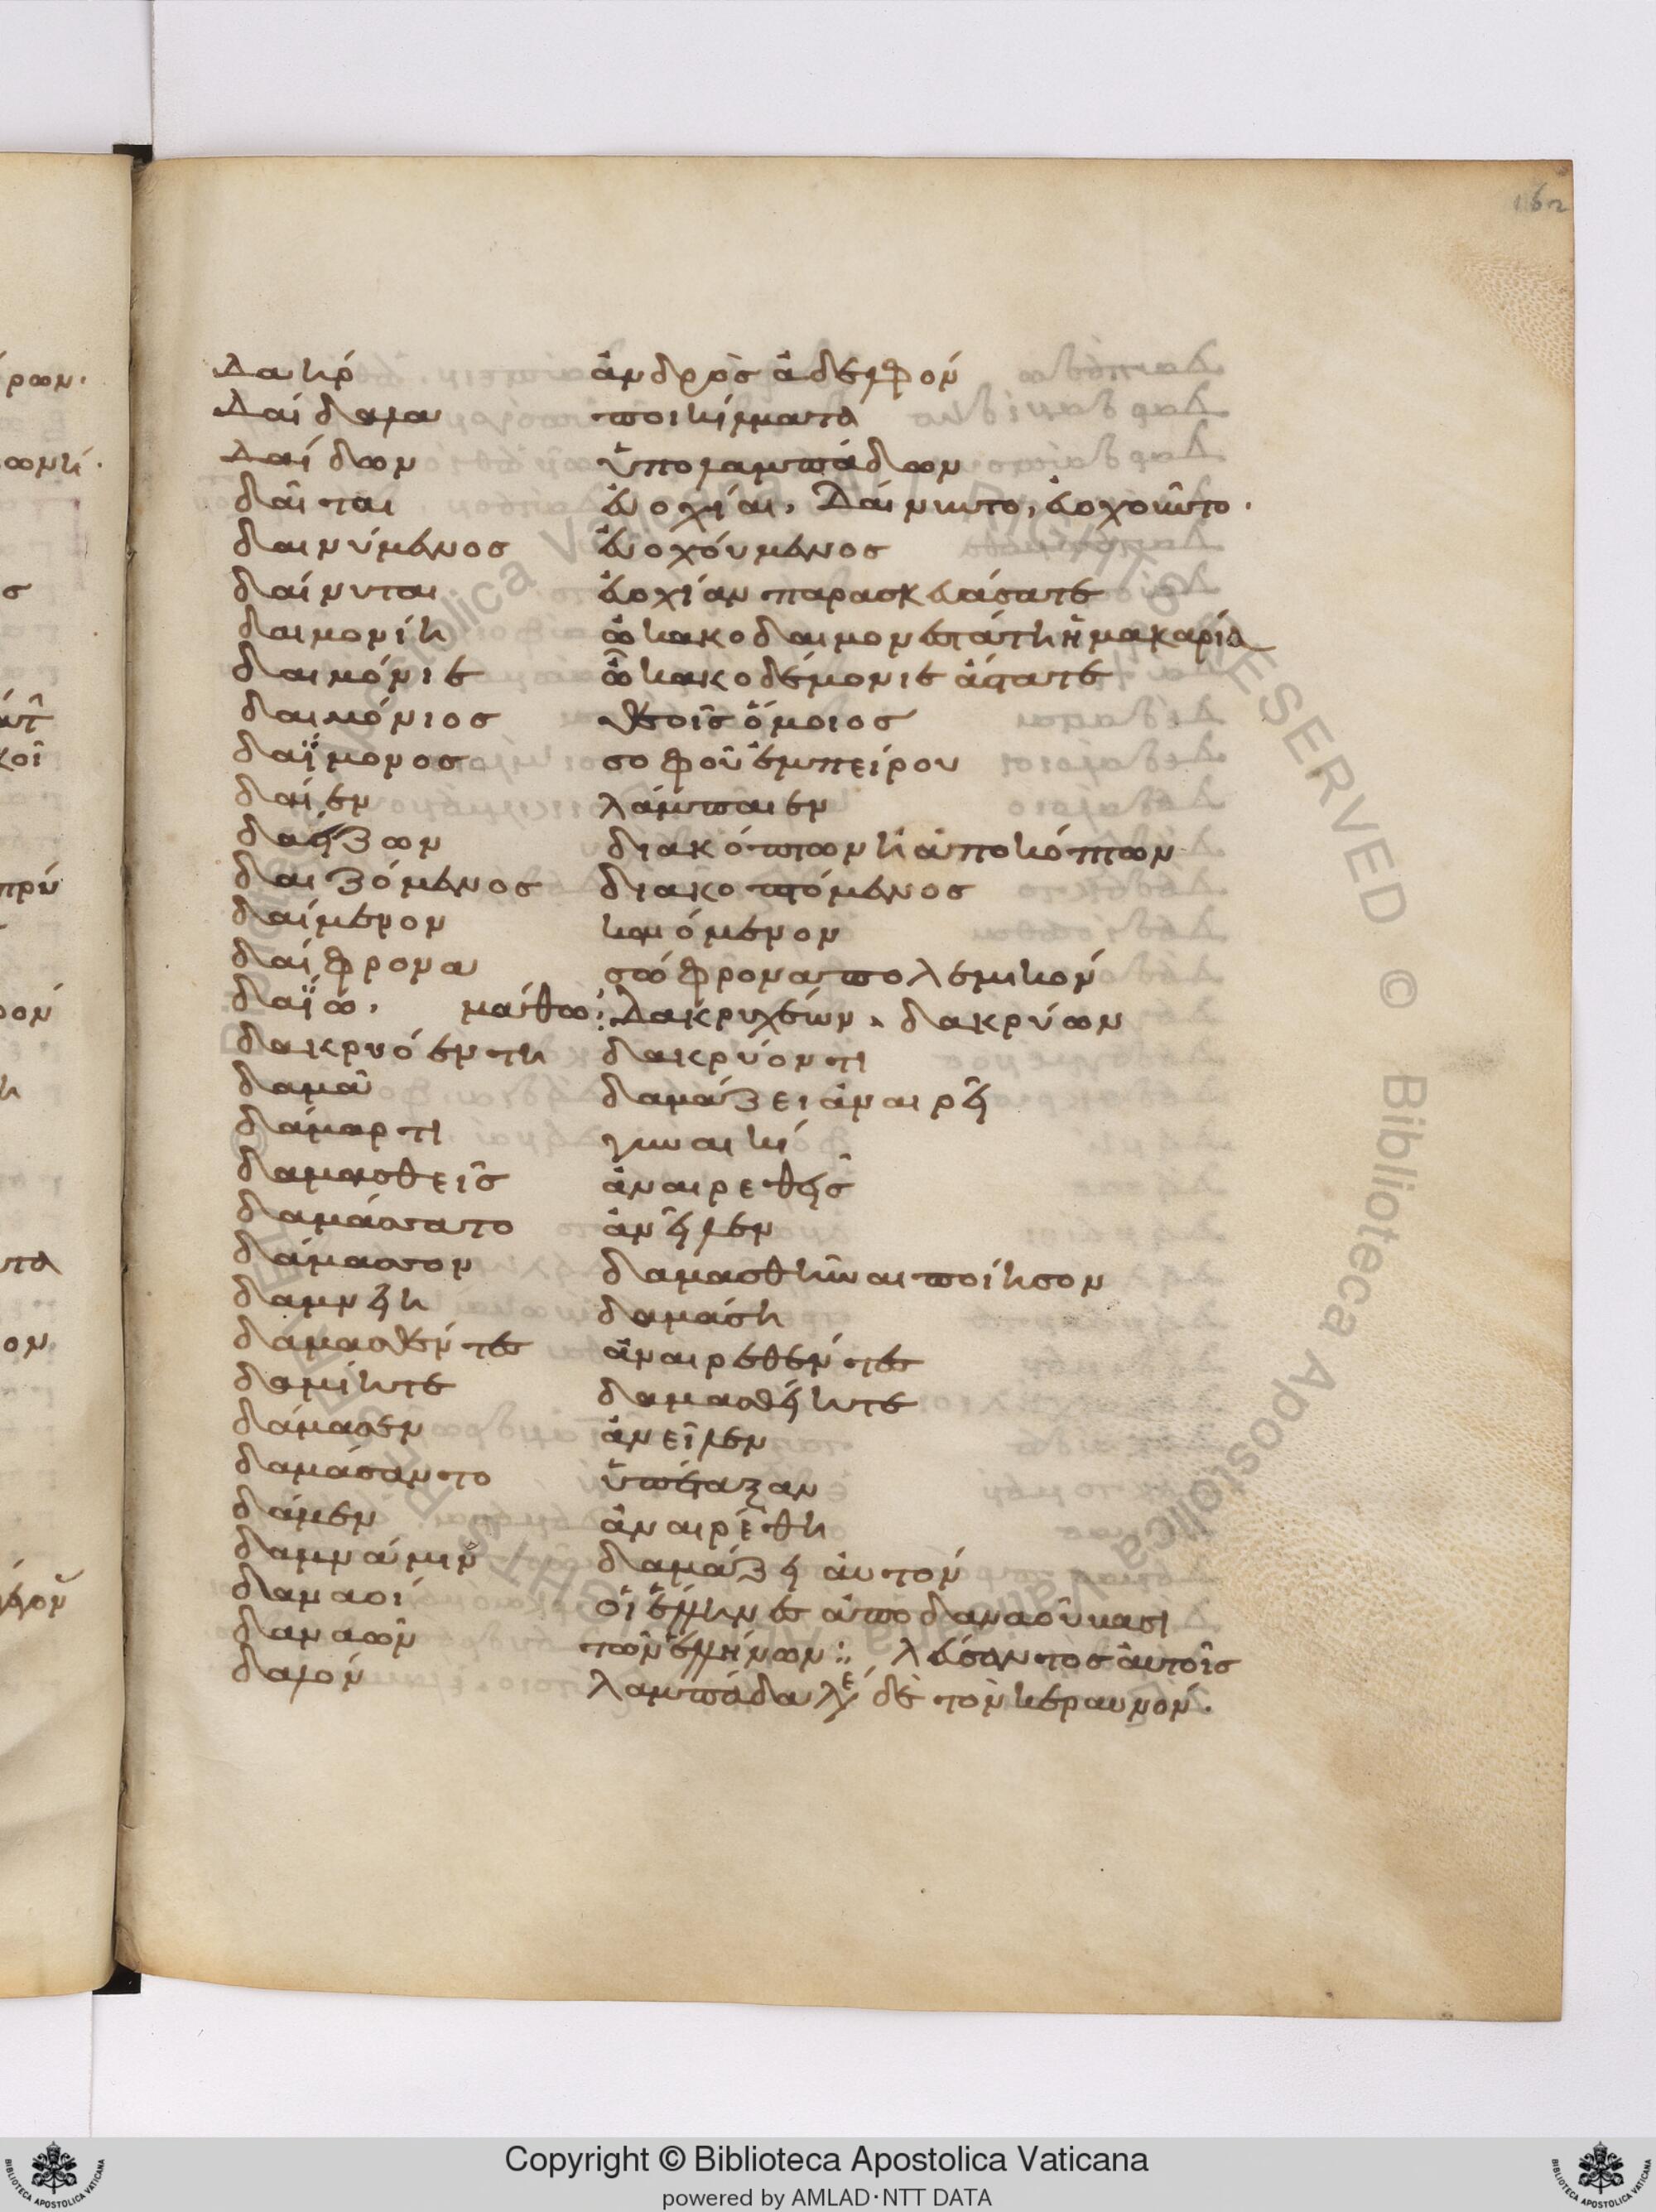 162
Δαήρ ἀνδρὸς ἀδελφόν
Δαίδαλα ποικίλματα
Δαίδων ὑπολαμπάδων
δαῖται εὐοχίαι, Δαίνυντο, εὐοχοῦντο.
δαινύμενος εὐοχούμενος
δαίνυται εὐοχίαν παρασκευάσατε
δαιμονίη ὦ κακοδαιμονεστάτη ἢ μακαρία
δαιμόνιε ὦ κακοδέμονιέστατε
δαιμόνιος θεοῖς ὅμοιος
δαΐμονος σοφοῦ ἐμπείρου
δαίεν λάμπαιεν
δαίζων διακόπτων ἢ ἀποκόπτων
δαιζόμενος διακοπτόμενος
δαίμενον καιόμενον
δαίφρονα σώφρονα πολεμικόν
δαΐω. μάθω: Δακρυχέων. δακρύων
δακρυόεντη δακρύοντι
δαμᾶ δαμάζει ἀναιρεῖ
δάμαρτι γυναικί
δαμασθεὶς ἀναιρεθεὶς
δαμάσατο ἀνεῖλεν
δάμασον δαμασθῆναι ποίησον
δαμνείη δαμάση
δαμασθέντες ἀναιρεθέντες
δαμίητε δαμασθείητε
δάμασεν ἀνεῖλεν
δαμάσαντο ὑπέταξαν
δάμεν ἀναιρέθη
δαμνάμιν δαμάζει ἀυτόν
δαναοί οἱ ἕλληνες ἀπὸ δαναοῦ κασι
δαναῶν τῶν ἑλλήνων: λεύσαντος ἀυτοῖς
δαλόν λαμπάδα λέ δὲ τὸν κεραυνόν.
Copyright © Biblioteca Apostolica Vaticana
powered by AMLAD·NTT DATA